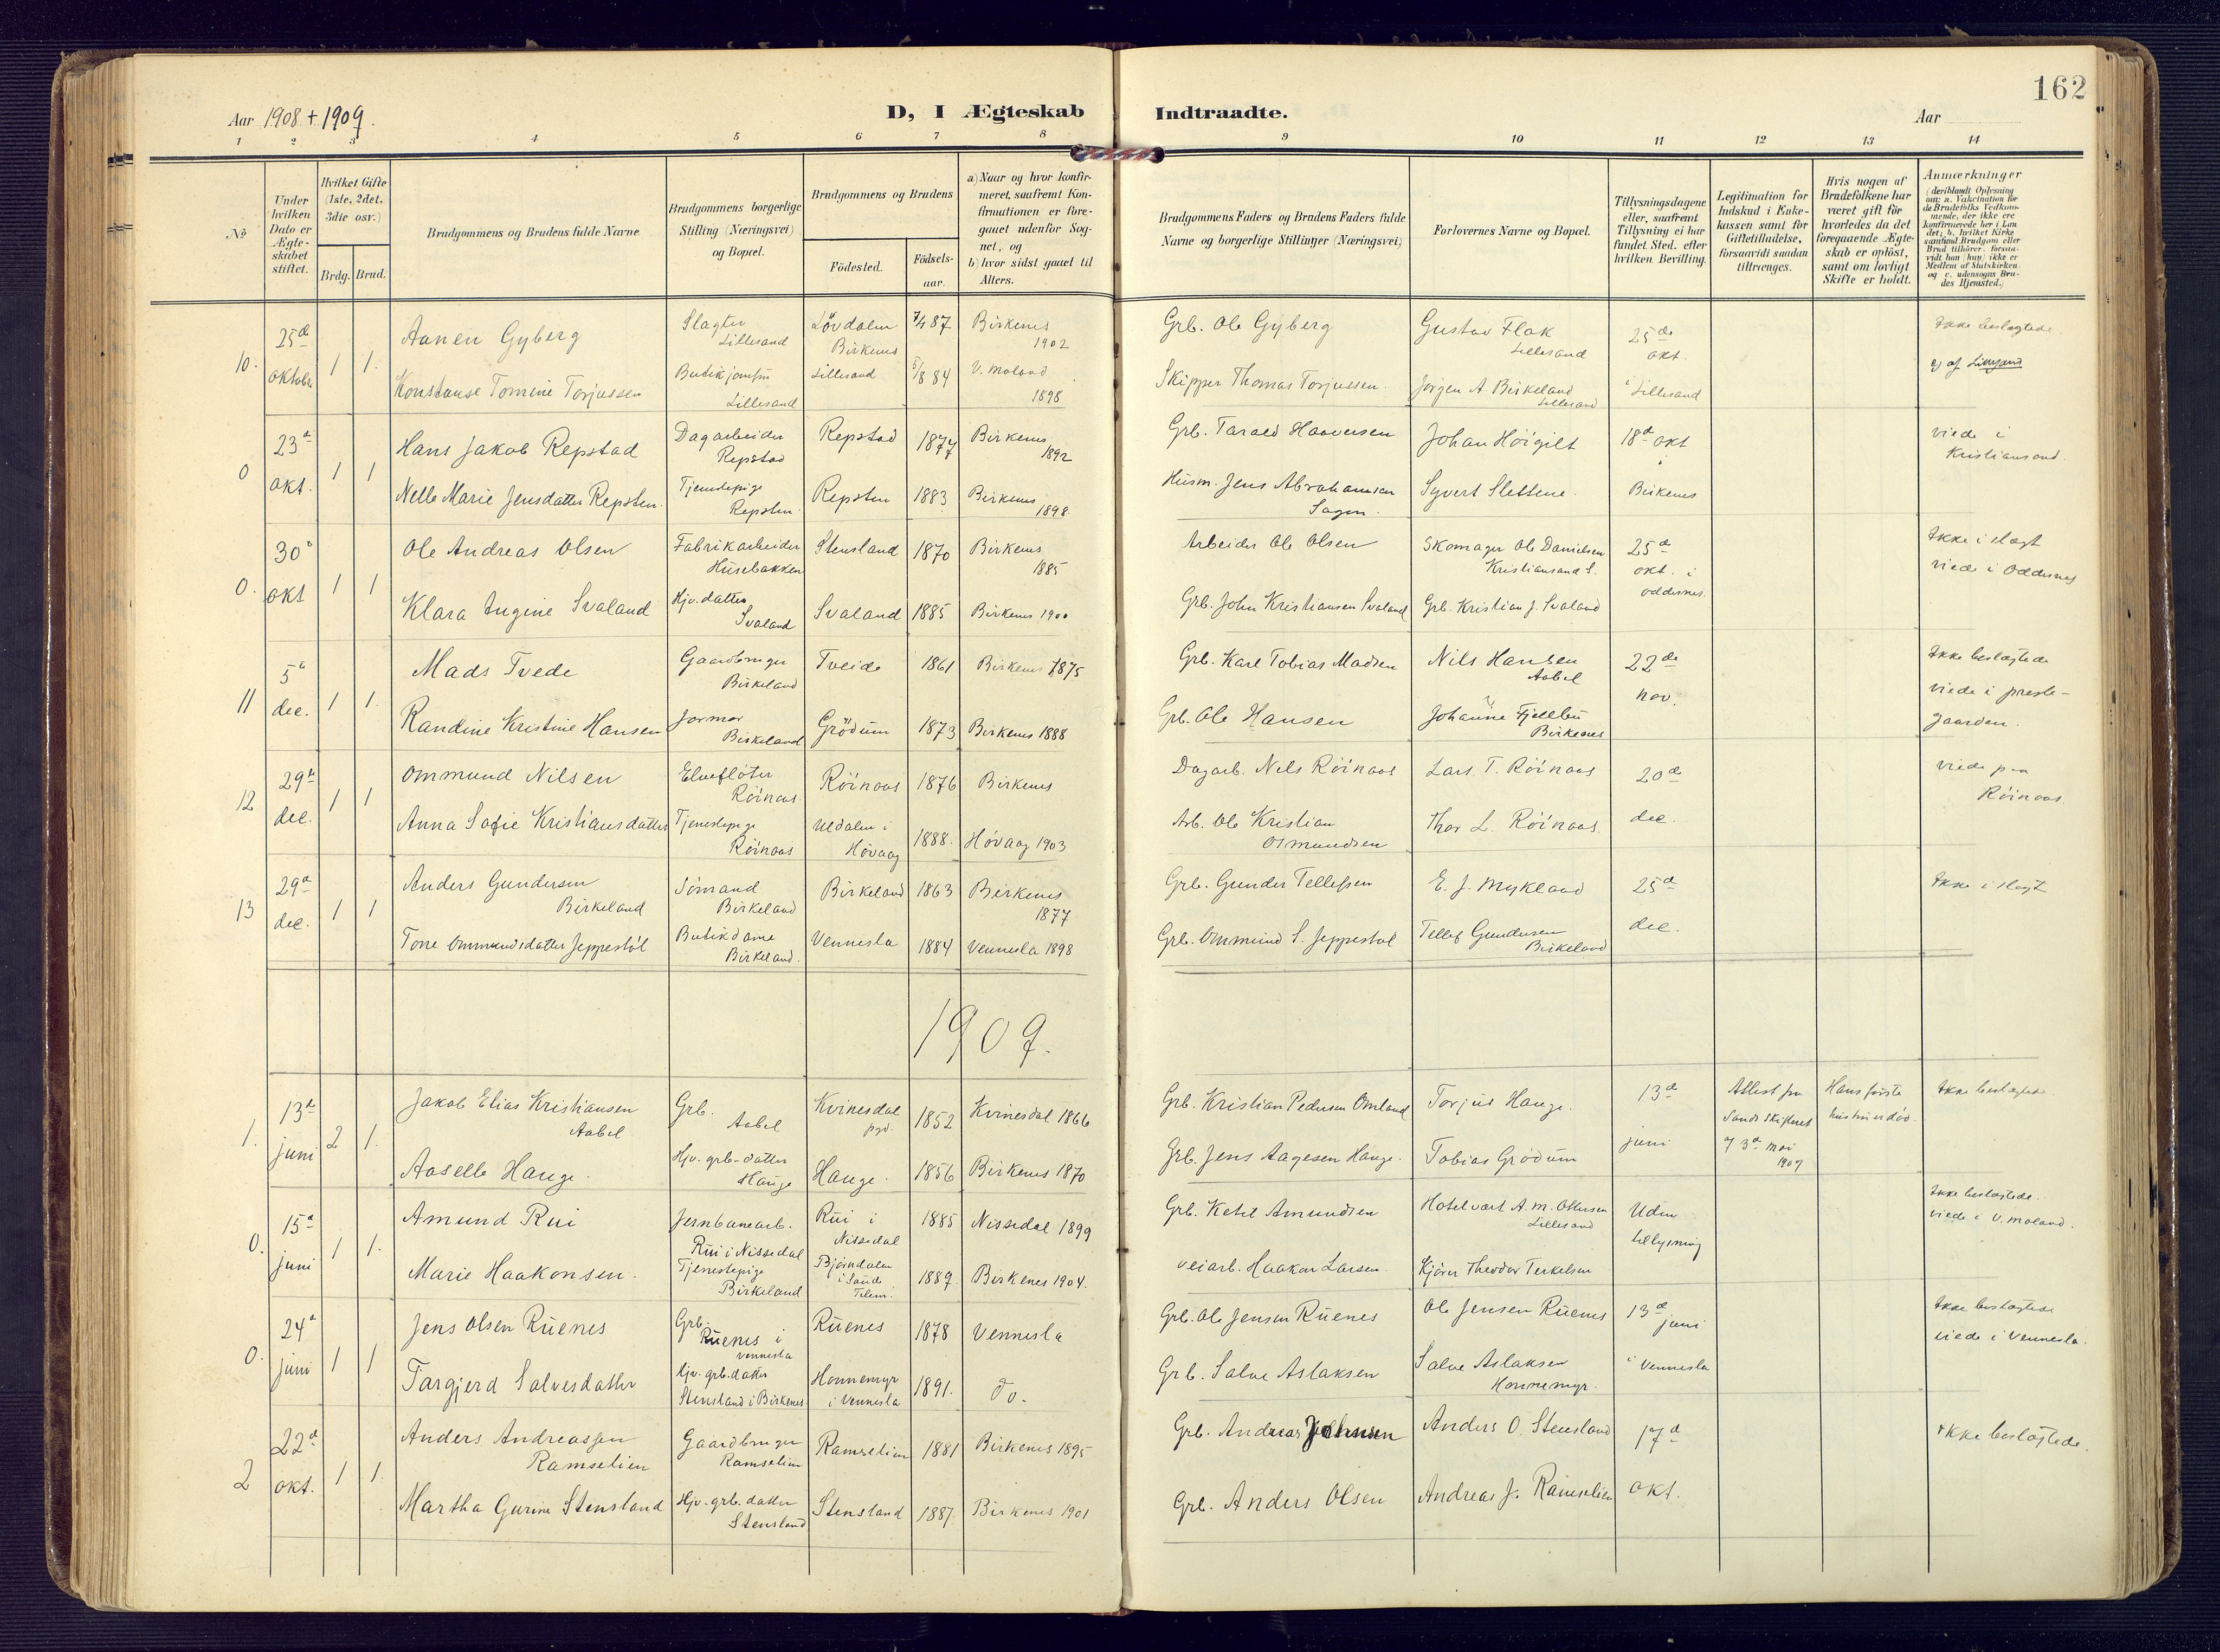 162
Aar 1908 + 1909.
D, I Ægteskab Indtraadte.
Aar
1 2 3 4 5 6 7 8 9 10 11 12 13 14
No
Under hvilken Dato er Ægteskabet stiftet.
Hvilket Gifte (1ste, 2det, 3die osv.)
Brdg. Brud.
Brudgommens og Brudens fulde Navne
Brudgommens borgerlige Stilling (Næringsvei) og Bopæl.
Brudgommens og Brudens
Fødested.
Fødselsaar.
a) Naar og hvor konfirmeret, saafremt Konfirmationen er foregaaet udenfor Sognet, og
b) hvor sidst gaaet til Alters.
Brudgommens Faders og Brudens Faders fulde Navne og borgerlige Stillinger (Næringsvei)
Forlovernes Navne og Bopæl.
Tillysningsdagene eller, saafremt Tillysning ei har fundet Sted, efter hvilken Bevilling.
Legitimation for Indskud i Enkekassen samt for Giftetilladelse, forsaavidt saadan tiltrænges.
Hvis nogen af Brudefolkene har været gift før hvorledes da det foregaaende Ægteskab er opløst, samt om lovligt Skifte er holdt.
Anmærkninger
10. 25de oktober 1 1.
Aanen Gyberg Slagter Lillesand Løvdalen Birkenes 7/4 87 Birkenes 1902 Grb. Ole Gyberg Gustav Flak Lillesand 25de okt. Ikke beslægtede.
Konstanse Tomine Torjussen Butikjomfru Lillesand Lillesand 5/8 84 V. Moland 1898 Skipper Thomas Torjussen. Jørgen A Birkeland Lillesand i Lillesand
0 23de okt. 1 1
Hans Jakob Repstad Dagarbeider Repstad Repstad 1877 Birkenes 1892 Grb. Tarald Haaversen Johan Höigilt 18de okt viede i Kristiansand.
Nelle Marie Jensdatter Repsten. Tjenestepige Repsten. Repsten 1883 Birkenes 1898. Husm. Jens Abrahamsen Sagen. Syvert Slettene. Birkenes
0. 30de okt 1 1
Ole Andreas Olsen Fabrikarbeider Husebakken Stensland 1870 Birkenes 1885 Arbeider Ole Olsen Skomager Ole Danielsen Kristiansand S. 25de okt. i Oddernes. Ikke i slægt viede i Oddernes
Klara Eugine Svaland Hjv. datter Svaland Svaland 1885 Birkenes 1900 Grb. John Kristiansen Svaland Grb. Kristian J. Svaland
11 5te dec. 1 1.
Mads Tvede Gaardbruger Birkeland Tveide 1861 Birkenes 1875 Grb. Karl Tobias Madsen Nils Hansen Aabel 22de nov. Ikke beslægtede viede i prestegaarden.
Randine Kristine Hansen Jormor Birkeland Grödum 1873 Birkenes 1888 Grb. Ole Hansen Johanne Fjellbu Birkenes
12 29de dec. 1 1
Ommund Nilsen Elvefløter Röinaas Röinaas 1876 Birkenes Dagarb. Nils Röinaas Lars. T. Röinaas 20de dec. viede paa Röinaas.
Anna Sofie Kristiansdatter Tjenestepige Röinaas Uldalen i Høvaag 1888. Høvaag 1903 Arb. Ole Kristian Osmundsen Thor L. Röinaas.
13 29de dec. 1 1
Anders Gundersen Birkeland Sömand Birkeland Birkeland 1863 Birkenes 1877 Grb. Gunder Tellefsen E. J. Mykland 25de dec. Ikke i slægt
Tone Ommundsdatter Jeppestöl Butikdame Birkeland. Vennesla 1884 Vennesla 1898 Grb. Ommund S. Jeppestøl Tellef Gundersen Birkeland
1909.
1. 13de juni 2 1.
Jakob Elias Kristiansen Aabel Grb. Aabel Kvinesdal pgd. 1852 Kvinesdal 1866 Grb. Kristian Pedersen Omland Torjus Hauge. 13de juni Attest fra Sands skifteret af 3de mai 1909 Hans første hustru er død. Ikke beslægtede
Aaselle Hauge. Hjv. grb-datter Hauge Hauge. 1856 Birkenes 1870 Grb. Jens Aagesen Hauge. Tobias Grödum
0. 15de juni 1 1.
Amund Rui Jernbanearb. Rui i Nissedal Rui i Nissedal 1885 Nissedal 1899 Grb. Ketil Amundsen Hotelvært A. M. Ottersen Lillesand Uden tillysning Ikke beslægtede. viede i V. Moland.
Marie Haakonsen. Tjenestepige Birkeland Björndalen i Sande Telem. 1889. Birkenes 1904. Veiarb. Haakon Larsen. Kjører Theodor Terkelsen
0. 24de juni 1 1
Jens Olsen Ruenes Grb. Ruenes i Vennesla Ruenes 1878 Vennesla Grb. Ole Jensen Ruenes Ole Jensen Ruenes 13de juni Ikke beslægtede viede i Vennesla.
Targjerd Salvesdatter hjv. grb. datter Stensland i Birkenes Honnemyr i Vennesla 1891. do. Grb. Salve Aslaksen Salve Aslaksen Honnemyr. i Vennesla
2 22de okt. 1 1.
Anders Andreassen Ramselien Gaardbruger Ramselien Ramselien 1881 Birkenes 1895 Grb. Andreas Johnsen Anders O. Stensland 17de okt. Ikke beslægtede.
Martha Gurine Stensland Hjv. grb. datter Stensland Stensland 1887. Birkenes 1901 Grb. Anders Olsen Andreas J. Ramselien